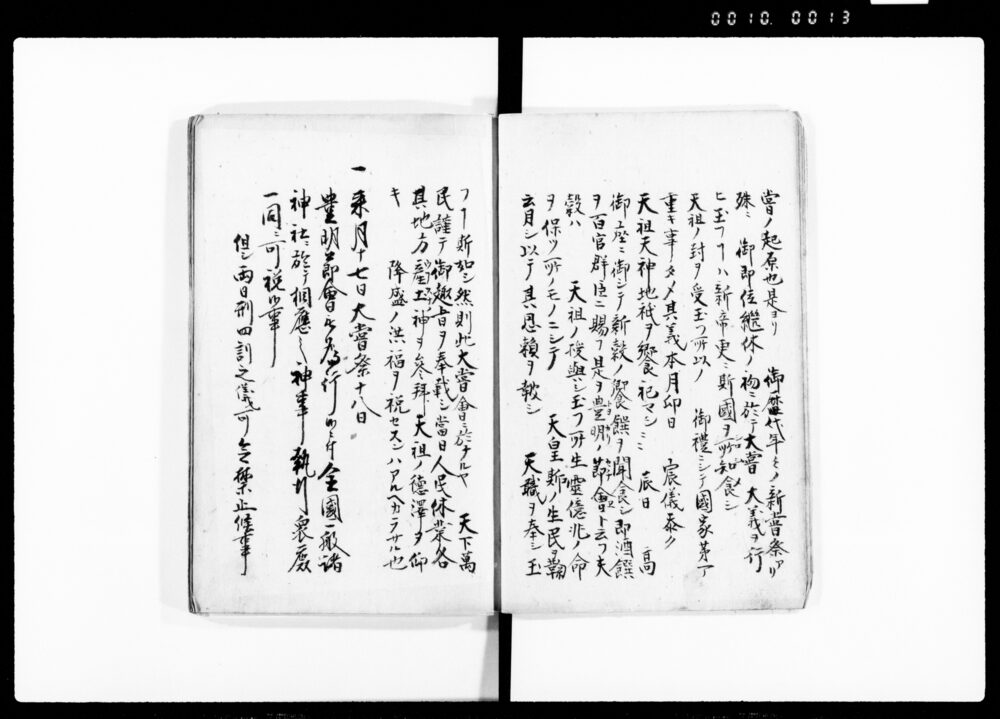 0010.0013
嘗ノ起原也是ヨリ　御歴代年々ノ新嘗祭アリ
殊ニ　御即位継体ノ初ニ於テ大嘗　大義ヲ行
ヒ玉フハ新帝更ニ斯國ヲ所知食シ
天祖ノ封ヲ受玉フ所以ノ　御禮ニシテ國家第一
重キ事タメ其義本月卯日　宸儀恭ク
天祖天神地祇ヲ饗祀マシミミ　辰日　高
御座ニ御シテ新穀ノ饗饌ヲ聞食シ即酒饌
ヲ百官群臣ニ賜フ是ヲ豊明ノ節會ト云フ夫
穀ハ　天祖ノ授與シ玉フ所生靈億兆ノ命
ヲ保ツ所ノモノニシテ　天皇斯ノ生民ヲ鞠
育シ以テ其恩頼ヲ報シ　天職ヲ奉シ玉
フ斯如シ然則此大嘗會ニ於ケルヤ　天下萬
民謹テ御趣旨ヲ奉戴シ當日人民休業各
其地方産土神ヲ参拝　天祖ノ徳澤ヲ仰
キ　隆盛ノ洪福ヲ祝セスンハアルヘカラサル也
一来月十七日大嘗祭十八日
豊明節會被為行候ニ付全國一般諸
神社ニ於テ相應之神事執行衆庶
一同ニ可祝候事
但シ両日刑囚訊之儀可令禁止候事